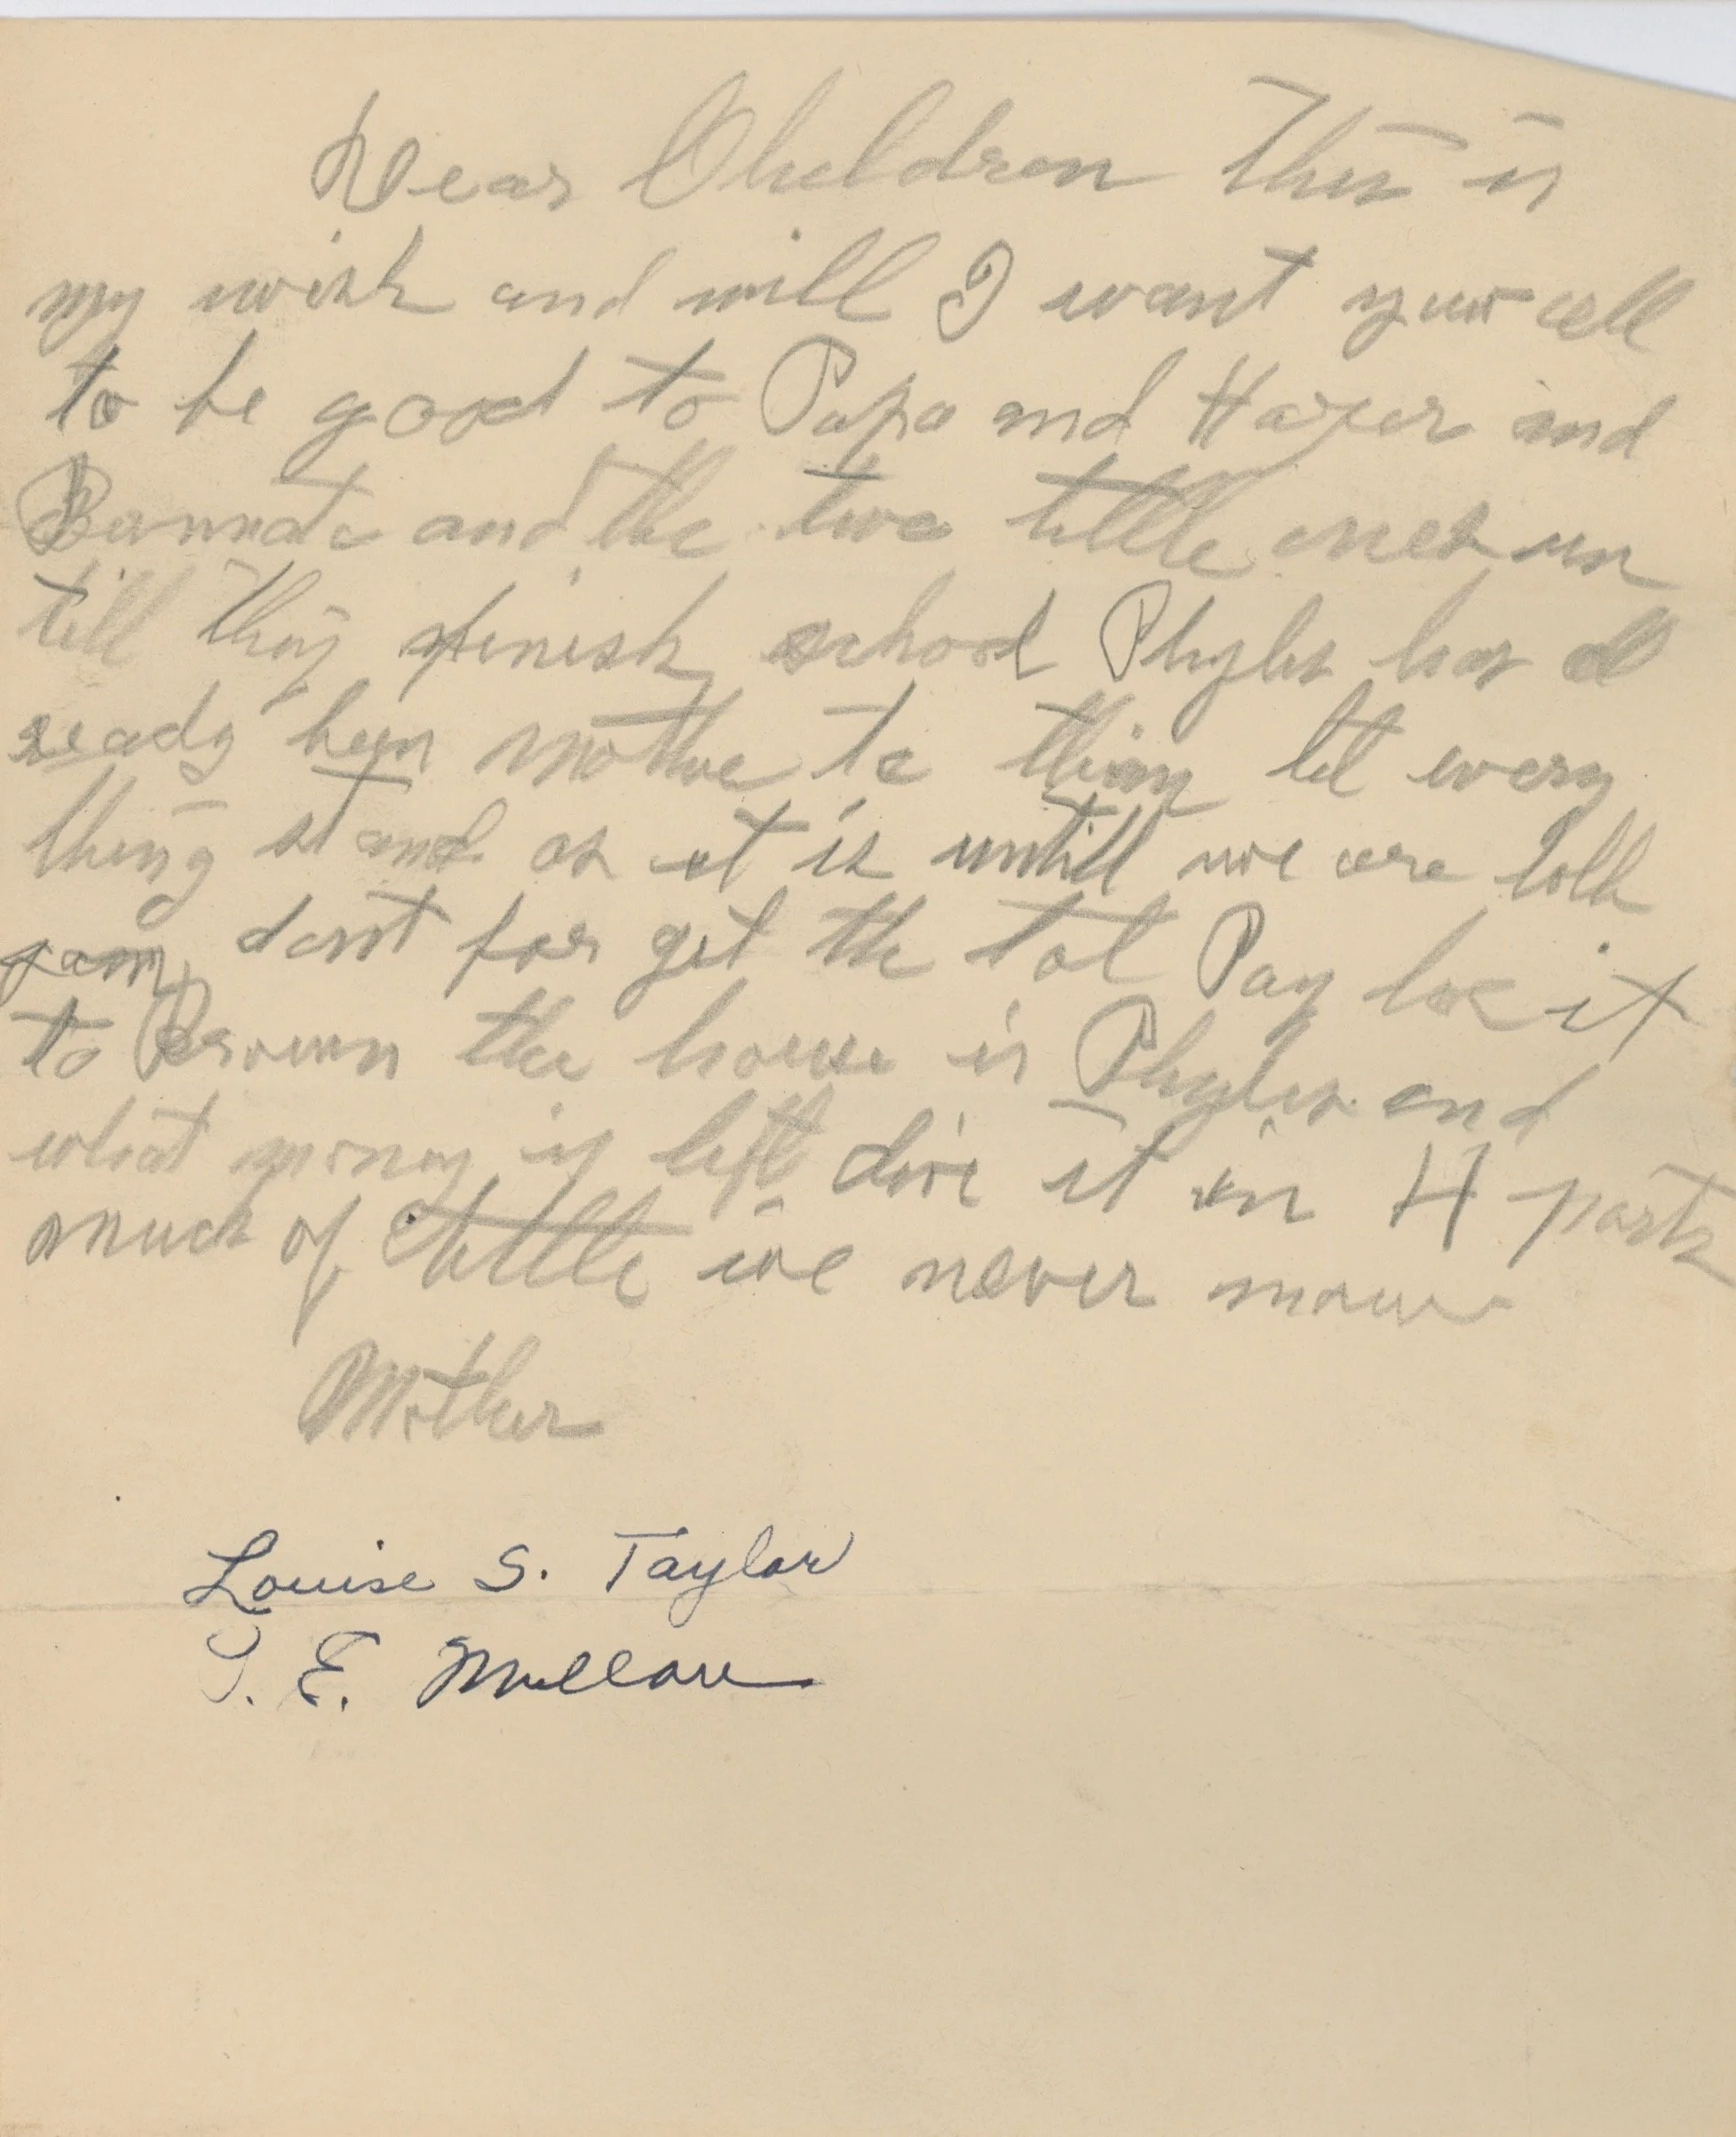 Dear Children This is
my wish and will I want you all
to be good to Papa and and
and the two little ones un
till they finish school Phylis has all
ready been mother to them let every
thing stand as it is untill we are both
dont for get the lot Pay loe it
to Brown the house is Phylis and
what money is left dive it in 4 parts
much of little we never now
Mother
Louise S. Taylor
E.